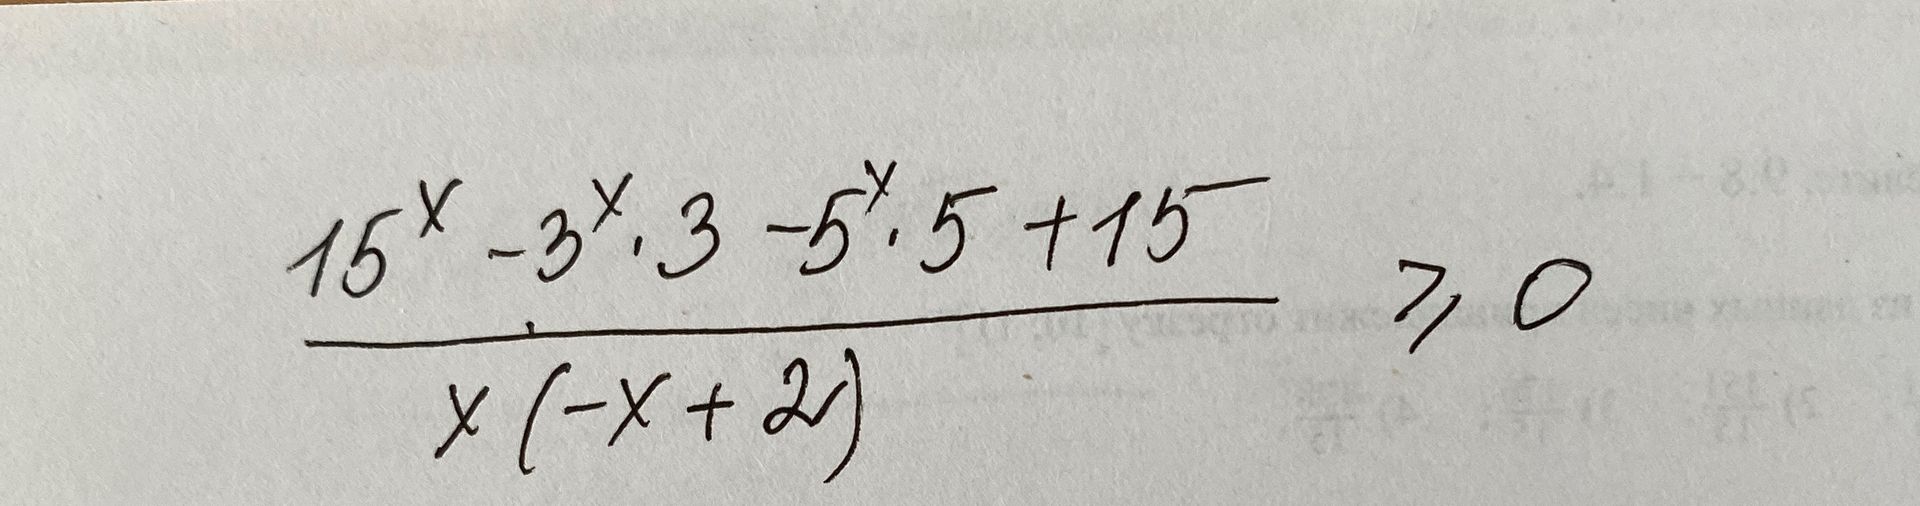 15^x - 3^x · 3 - 5^x · 5 + 15
x(-x + 2)
⩾ 0